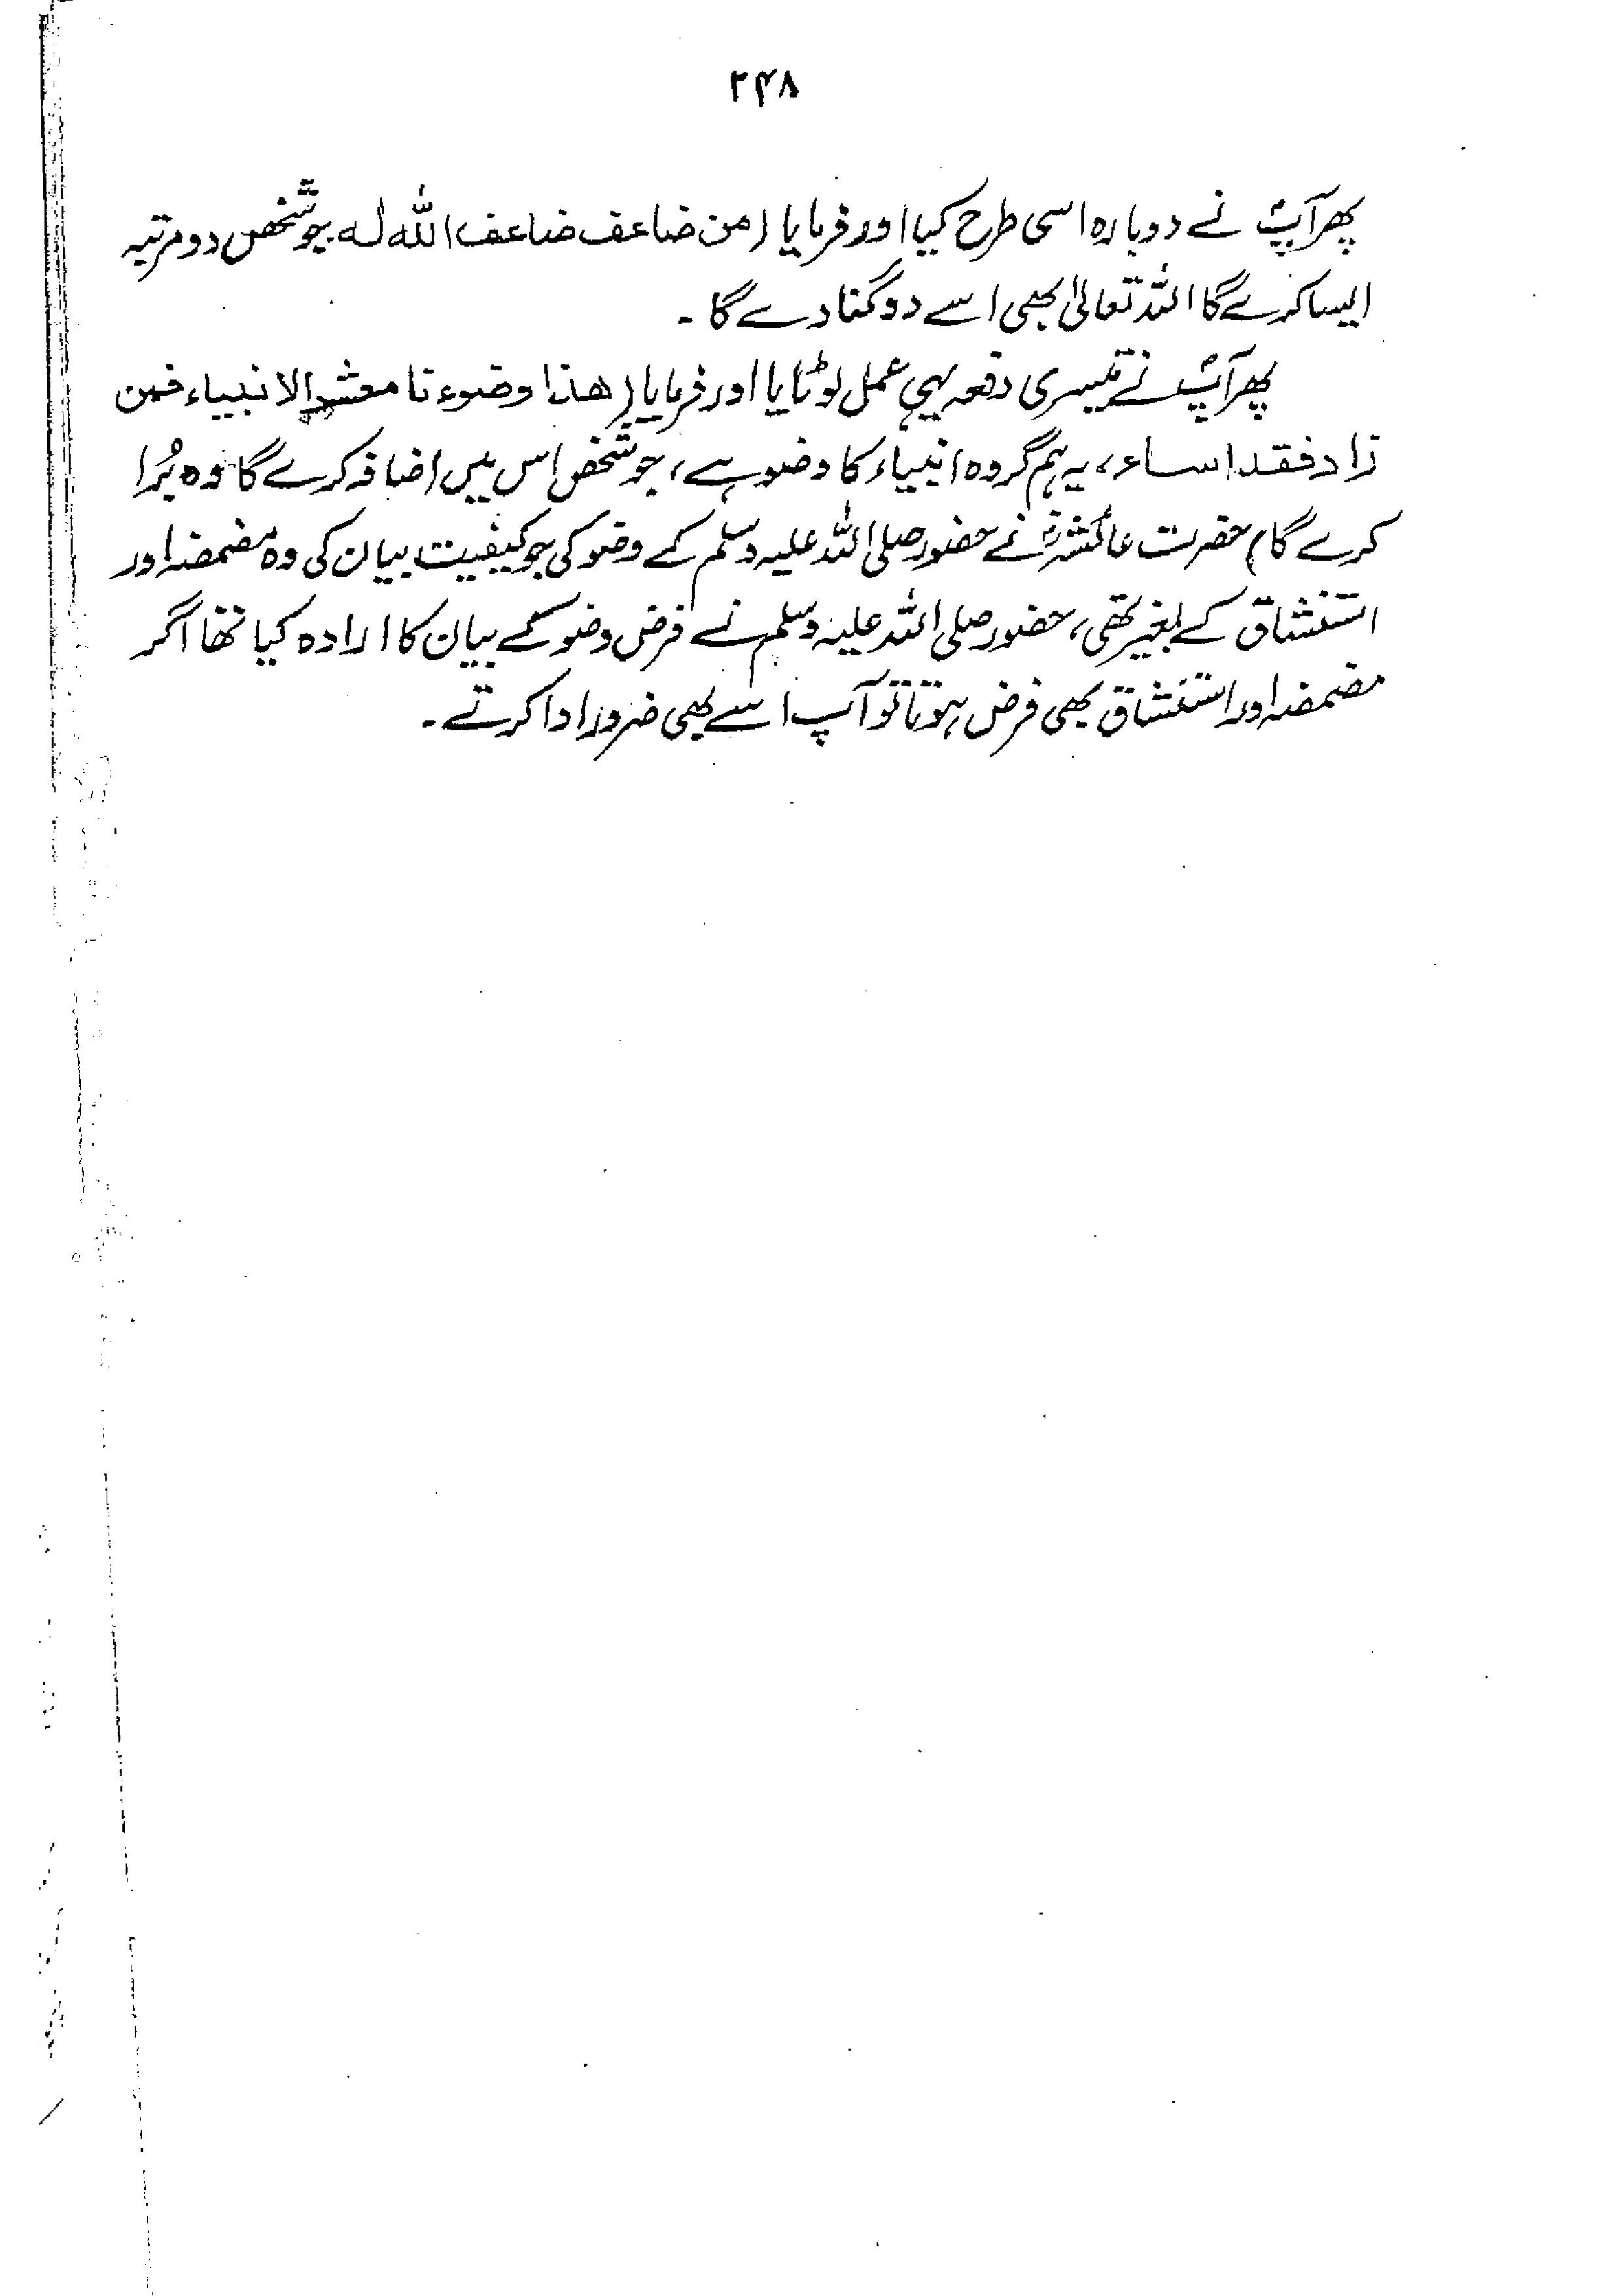 ۲۴۸
پھر آپؐ نے دوبارہ اسی طرح کیا اور فرمایا (من ضاعف ضاعف اللّٰہ لہ جو شخص دو مرتبہ
ایسا کرے گا اللہ تعالیٰ بھی اسے دوگنا دے گا ۔
پھر آپؐ نے تیسری دفعہ یہی عمل لوٹایا اور فرمایا (ھذا وضوءنا معشر الانبیاء فمن
زاد فقد اساء، یہ ہم گروہ انبیاء کا وضو ہے، جو شخص اس میں اضافہ کرے گا وہ بُرا
کرے گا) حضرت عائشہؓ نے حضور صلی اللہ علیہ وسلم کے وضو کی جو کیفیت بیان کی وہ مضمضہ اور
استنشاق کے بغیر تھی، حضور صلی اللہ علیہ وسلم نے فرض وضو کے بیان کا ارادہ کیا تھا اگر
مضمضہ اور استنشاق بھی فرض ہوتا تو آپ اسے بھی ضرور ادا کرتے ۔